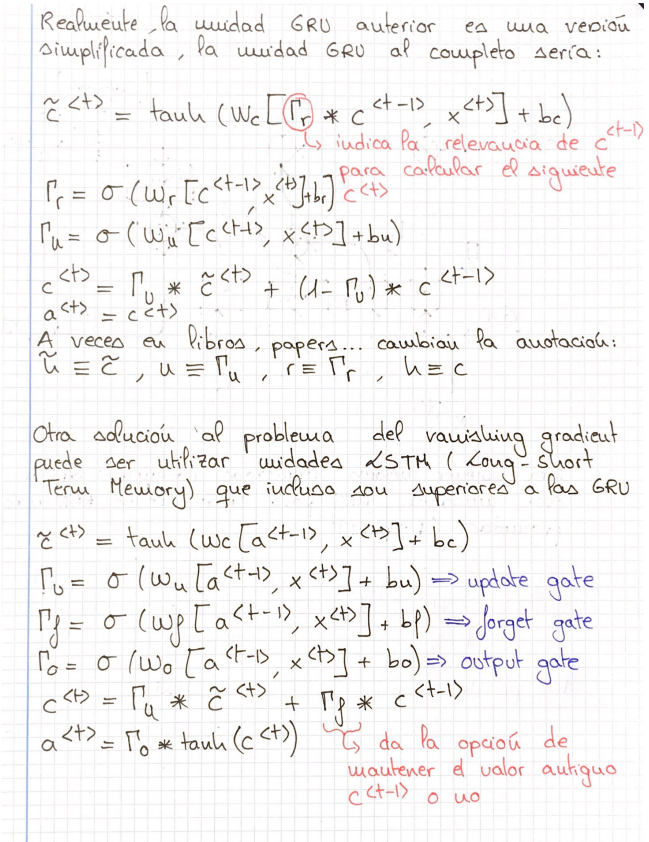 Realmente, la unidad GRU anterior es una versión
simplificada, la unidad GRU al completo sería:
c̃<t> = tanh (Wc [Γr * c<t-1>, x<t>] + bc)
↳ indica la relevancia de c<t-1>
para calcular el siguiente
c<t>
Γr = σ (Wr [c<t-1>, x<t>]+br)
Γu = σ (Wu [c<t-1>, x<t>] + bu)
c<t> = Γu * c̃<t> + (1- Γu) * c<t-1>
a<t> = c<t>
A veces en libros, papers... cambian la anotación:
h̃ ≡ c̃ , u ≡ Γu , r ≡ Γr , h ≡ c
Otra solución al problema del vanishing gradient
puede ser utilizar unidades LSTM (Long-Short
Term Memory) que incluso son superiores a las GRU
c̃<t> = tanh (Wc [a<t-1>, x<t>] + bc)
Γu = σ (Wu [a<t-1>, x<t>] + bu) ⇒ update gate
Γf = σ (Wf [a<t-1>, x<t>] + bf) ⇒ forget gate
Γo = σ (Wo [a<t-1>, x<t>] + bo) ⇒ output gate
c<t> = Γu * c̃<t> + Γf * c<t-1>
a<t> = Γo * tanh (c<t>)
↳ da la opción de
mantener el valor antiguo
c<t-1> o no